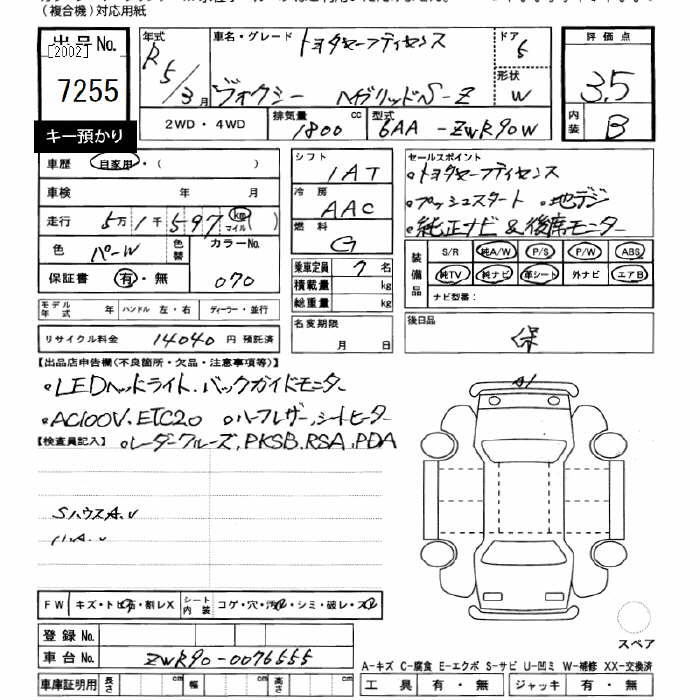 (複合機)対応用紙
出品No. 年式 車名・グレード トヨタセーフティセンス ドア 5 評価点
[2002] R5/3月 ヴォクシー ハイブリッドS-Z 形状 W 3.5
7255 2WD・4WD 排気量 1800 cc 型式 6AA-ZWR90W 内装 B
キー預かり
車歴 自家用・( ) シフト IAT セールスポイント
車検 年 月 冷房 AAC 。トヨタセーフティセンス
走行 5万1千597 km マイル 燃料 G 。プッシュスタート 。地デジ
。純正ナビ&後席モニター
色 パールW 色替 カラーNo. 070 乗車定員 7名 装備品 S/R 純A/W P/S P/W ABS
保証書 有・無 積載量 kg 純TV 純ナビ 革シート 外ナビ エアB
総重量 kg ナビ型番:
モデル年式 ハンドル 左・右 ディーラー・並行 名変期限 月 日 後日品 保
リサイクル料金 14040円 預託済
【出品店申告欄(不良箇所・欠品・注意事項等)】
。LEDヘッドライト.バックガイドモニター
。AC100V.ETC2.0 。ハーフレザー.シートヒーター
【検査員記入】 。レーダークルーズ,PKSB.RSA.PDA
A1
Sハウス A.U
ハA.U
FW キズ・トビ石・割レX シート内装 コゲ・穴・汚レ・シミ・破レ・スレ
登録No.
車台No. ZWR90-0076555
スペア
A-キズ C-腐食 E-エクボ S-サビ U-凹ミ W-補修 XX-交換済
車庫証明用 長さ cm 幅 cm 高さ cm 工具 有・無 ジャッキ 有・無